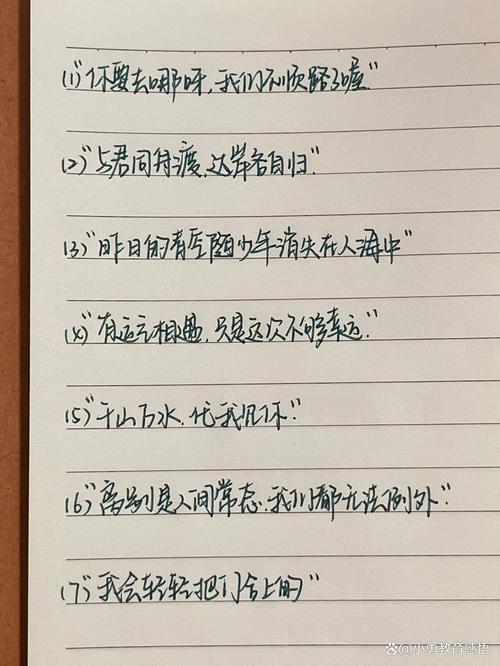 (1)"你要去哪呀,我们不顺路了喔"
(2)"与君同舟渡,达岸各自归"
(3)"昨日的青空随少年消失在人海中"
(4)"有运气相遇,只是这次不够幸运"
(5)"千山万水,代我见你"
(6)"离别是人间常态,我们都无法例外"
(7)"我会轻轻把门合上的"
@小勇教育感悟